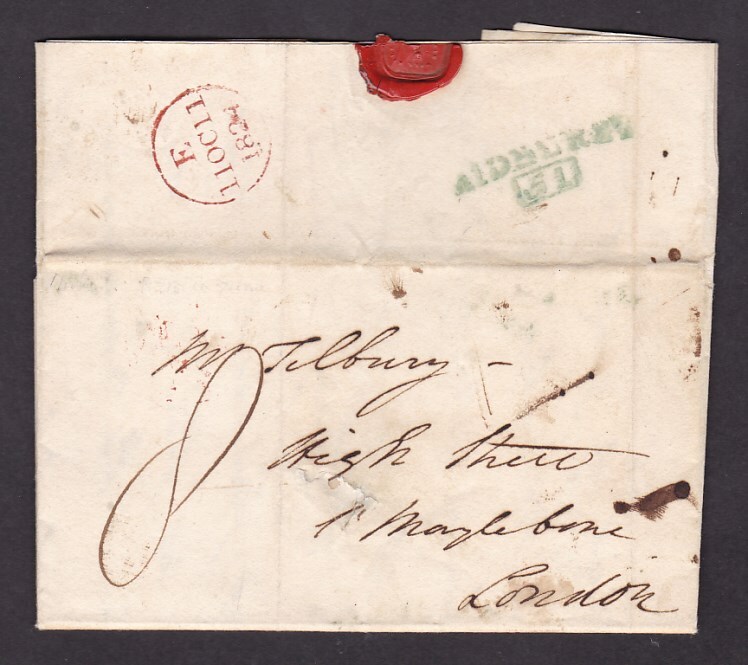 E
11 OC 11
1824
MIDHURST
51
Mr Tilbury –
High Street
Marylebone
London
8